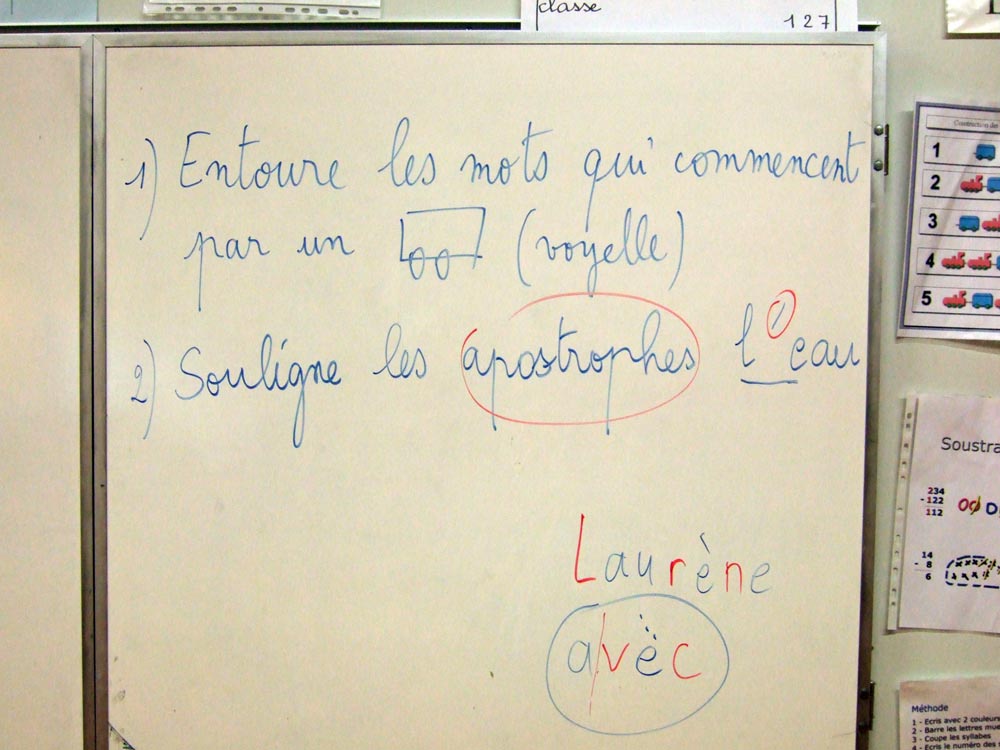 classe
127
1) Entoure les mots qui commencent
par un (voyelle)
2) Souligne les apostrophes l'eau
Laurène
avec
1
2
3
4
5
Soustra
234
-122
112
14
- 8
6
Méthode
1 - Ecris avec 2 couleurs
2 - Barre les lettres mue
3 - Coupe les syllabes
4 - Ecris le numéro des